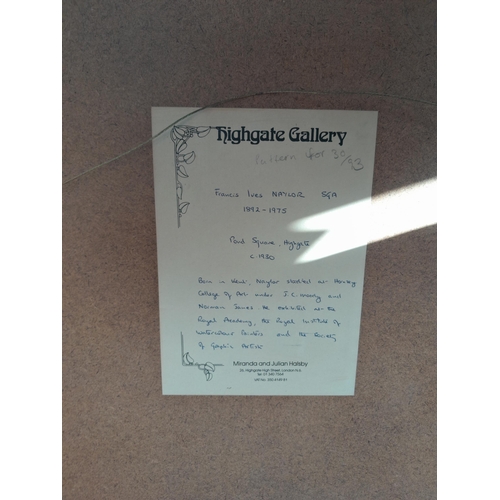 Highgate Gallery
for 30/93
Francis Ives NAYLOR SGA
1892-1975
Pond Square, Highgate
c. 1930
Born in Kent, Naylor studied at Hornsey
College of Art under J.C. and
Norman Janes. He exhibited at the
Royal Academy, the Royal Institute of
Watercolour Painters and the Society
of Graphic Artists
Miranda and Julian Halsby
26, Highgate High Street, London N.6.